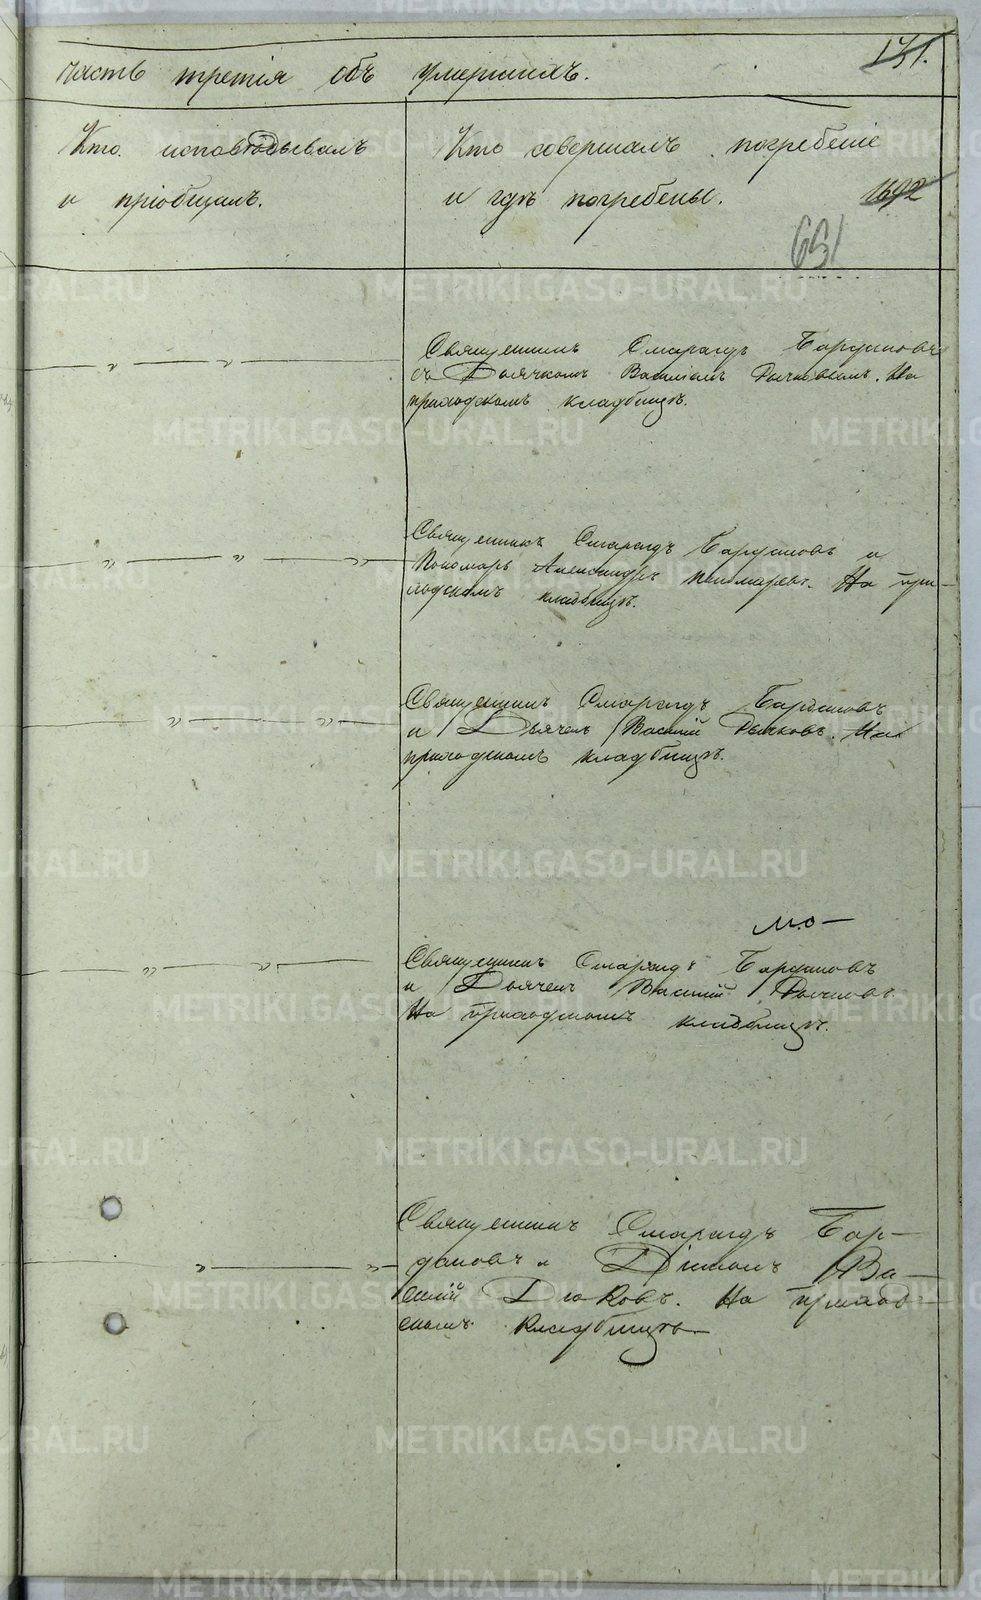 Часть третія объ умершихъ.
151.
Кто исповѣдывалъ
и пріобщалъ.
Кто совершалъ погребеніе
и гдѣ погребены.
1692
651
Священникъ Смарагдъ Бардановъ
съ Дьячкомъ Василіемъ Рычковымъ. На
приходскомъ кладбищѣ.
Священникъ Смарагдъ Бардановъ и
Пономарь Александръ Пономаревъ. На при-
ходскомъ кладбищѣ.
Священникъ Смарагдъ Бардановъ
и Дьячекъ Василій Рычковъ. На
приходскомъ кладбищѣ.
Священникъ Смарагдъ Бардановъ
и Дьячекъ Василій Рычковъ.
На приходскомъ кладбищѣ.
Священникъ Смарагдъ Бар-
дановъ и Діаконъ Ва-
силій На приход-
скомъ кладбищѣ.
METRIKI.GASO-URAL.RU